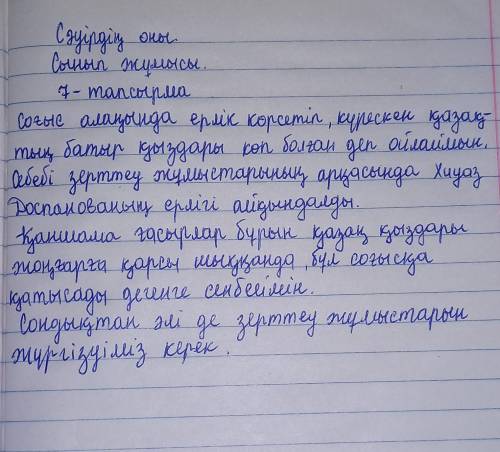 Сәуірдің оны.
Сынып жұмысы.
7-тапсырма
Соғыс алаңында ерлік көрсетіп, күрескен қазақ-
тың батыр қыздары көп болған деп ойлаймын.
Себебі зерттеу жұмыстарының арқасында Хиуаз
Доспанованың ерлігі айқындалды.
Қаншама ғасырлар бұрын қазақ қыздары
жоңғарға қарсы шыққанда, бұл соғысқа
қатысады дегенге сенбеймін.
Сондықтан әлі де зерттеу жұмыстарын
жүргізуіміз керек.